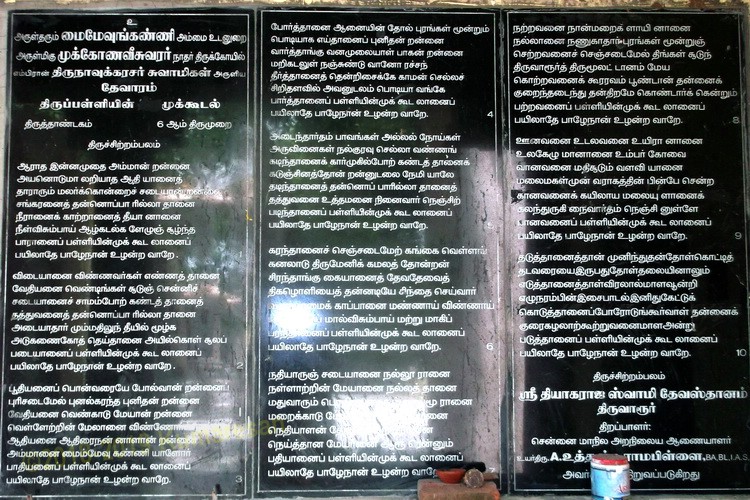 உ
அருள்தரும் மைமேவுங்கண்ணி அம்மை உடனுறை
அருள்மிகு முக்கோணவீசுவரர் நாதர் திருக்கோயில்
எம்பிரான் திருநாவுக்கரசர் சுவாமிகள் அருளிய
தேவாரம்
திருப்பள்ளியின் முக்கூடல்
திருத்தாண்டகம் 6 ஆம் திருமுறை
திருச்சிற்றம்பலம்
ஆராத இன்னமுதை அம்மான் றன்னை
அயனொடுமா லறியாத ஆதி யானைத்
தாராரும் மலர்க்கொன்றைச் சடையான்றன்னை
சங்கரனைத் தன்னொப்பா ரில்லா தானை
நீரானைக் காற்றானைத் தீயா னானை
நீள்விசும்பாய் ஆழ்கடல்க ளேழுஞ் சூழ்ந்த
பாரானைப் பள்ளியின்முக் கூட லானைப்
பயிலாதே பாழேநான் உழன்ற வாறே.
விடையானை விண்ணவர்கள் எண்ணத் தானை
வேதியனை வெண்டிங்கள் சூடுஞ் சென்னிச்
சடையானைச் சாமம்போற் கண்டத் தானைத்
தத்துவனைத் தன்னொப்பா ரில்லா தானை
அடையாதார் மும்மதிலுந் தீயில் மூழ்க
அடுகணைகோத் தெய்தானை அயில்கொள் சூலப்
படையானைப் பள்ளியின்முக் கூட லானைப்
பயிலாதே பாழேநான் உழன்ற வாறே. 2
பூதியனைப் பொன்வரையே போல்வான் றன்னைப்
புரிசடைமேல் புனல்கரந்த புனிதன் றன்னை
வேதியனை வெண்காடு மேயான் றன்னை
வெள்ளேற்றின் மேலானை விண்ணோர்
ஆதியனை ஆதிரைநன் னாளான் றன்னை
அம்மானை மைமேவு கண்ணி யாளோர்
பாதியனைப் பள்ளியின்முக் கூட லானைப்
பயிலாதே பாழேநான் உழன்ற வாறே. 3
போர்த்தானை ஆனையின் தோல் புரங்கள் மூன்றும்
பொடியாக எய்தானைப் புனிதன் றன்னை
வார்த்தாங்கு வனமுலையாள் பாகன் றன்னை
மறிகடலுள் நஞ்சுண்டு வானோ ரச்சந்
தீர்த்தானைத் தென்றிசைக்கே காமன் செல்லச்
சிறிதளவில் அவனுடலம் பொடியா வங்கே
பார்த்தானைப் பள்ளியின்முக் கூட லானைப்
பயிலாதே பாழேநான் உழன்ற வாறே. 4
அடைந்தார்தம் பாவங்கள் அல்லல் நோய்கள்
அருவினைகள் நல்குரவு செல்லா வண்ணங்
கடிந்தானைக் கார்முகில்போற் கண்டத் தானைக்
கடுஞ்சினத்தோன் றன்னுடலை நேமி யாலே
தடிந்தானைத் தன்னொப் பாரில்லா தானைத்
தத்துவனை உத்தமனை நினைவார் நெஞ்சிற்
படிந்தானைப் பள்ளியின்முக் கூட லானைப்
பயிலாதே பாழேநான் உழன்ற வாறே. 5
கரந்தானைச் செஞ்சடைமேற் கங்கை வெள்ளங்
கனலாடு திருமேனிக் கமலத் தோன்றன்
சிரந்தாங்கு கையானைத் தேவதேவைத்
திகழொளியைத் தன்னடியே சிந்தை செய்வார்
காப்பானை மண்ணாய் விண்ணாய்
மால்விசும்பாய் மற்று மாகிப்
பரந்தானைப் பள்ளியின்முக் கூட லானைப்
பயிலாதே பாழேநான் உழன்ற வாறே. 6
நதியாருஞ் சடையானை நல்லூ ரானை
நள்ளாற்றின் மேயானை நல்லத் தானை
மதுவாரும் ரானை
மறைக்காடு
நெய்த்தான மேயானை
பதியானைப் பள்ளியின்முக் கூட லானைப்
பயிலாதே பாழேநான் உழன்ற வாறே. 7
நற்றவனை நான்மறைக ளாயி னானை
நல்லானை நணுகாதார்புரங்கள் மூன்றுஞ்
செற்றவனைச் செஞ்சடைமேல் திங்கள் சூடுந்
திருவாரூர்த் திருமூலட் டானம் மேய
கொற்றவனைக் கூரரவம் பூண்டான் தன்னைக்
குறைந்தடைந்து தன்திறமே கொண்டார்க் கென்றும்
பற்றவனைப் பள்ளியின்முக் கூட லானைப்
பயிலாதே பாழேநான் உழன்ற வாறே. 8
ஊனவனை உடலவனை உயிரா னானை
உலகேழு மானானை உம்பர் கோவை
வானவனை மதிசூடும் வளவி யானை
மலைமகள்முன் வராகத்தின் பின்பே சென்ற
கானவனைக் கயிலாய மலையு ளானைக்
கலந்துருகி நைவார்தம் நெஞ்சி னுள்ளே
பானவனைப் பள்ளியின்முக் கூட லானைப்
பயிலாதே பாழேநான் உழன்ற வாறே. 9
தடுத்தானைத்தான் முனிந்துதன்தோள்கொட்டித்
தடவரையைஇருபதுதோள்தலையினாலும்
எடுத்தானைத்தாள்விரலால்மாளஊன்றி
எழுநரம்பின்இசைபாடல்இனிதுகேட்டுக்
கொடுத்தானைப்பேரோடுங்கூர்வாள் தன்னைக்
குரைகழலாற்கூற்றுவனைமாளஅன்று
படுத்தானைப் பள்ளியின்முக் கூட லானைப்
பயிலாதே பாழேநான் உழன்ற வாறே. 10
திருச்சிற்றம்பலம்
ஸ்ரீ தியாகராஜ ஸ்வாமி தேவஸ்தானம்
திருவாரூர்
திறப்பாளர்:
சென்னை மாநில அறநிலைய ஆணையாளர்
உயர்திரு. A. உத்த ராமபிள்ளை, B.A.,B.L.,I.A.S.,